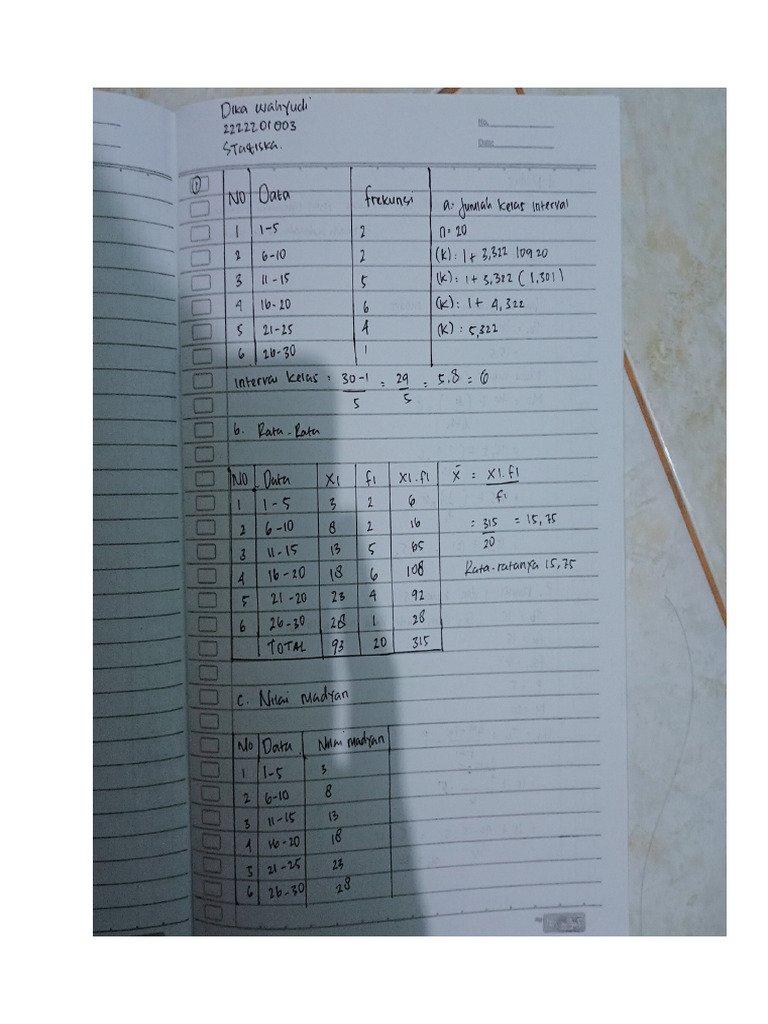 Dika Wahyudi
2222201003
Statiska.
No.
Date
1
NO Data frekunsi a. Jumlah kelas interval
1 1-5 2 n = 20
2 6-10 2 (k) : 1 + 3,322 log 20
3 11-15 5 (k) : 1 + 3,322 (1,301)
4 16-20 6 (k) : 1 + 4,322
5 21-25 4 (k) : 5,322
6 26-30 1
interval kelas : 30-1 / 5 = 29 / 5 = 5.8 = 6
b. Rata-Rata
NO Data X1 f1 X1.f1 x̄ = X1.f1 / f1
1 1-5 3 2 6
2 6-10 8 2 16 = 315 / 20 = 15,75
3 11-15 13 5 65
4 16-20 18 6 108 Rata-ratanya 15,75
5 21-20 23 4 92
6 26-30 28 1 28
TOTAL 93 20 315
c. Nilai madyan
No Data Nilai madyan
1 1-5 3
2 6-10 8
3 11-15 13
4 16-20 18
5 21-25 23
6 26-30 28